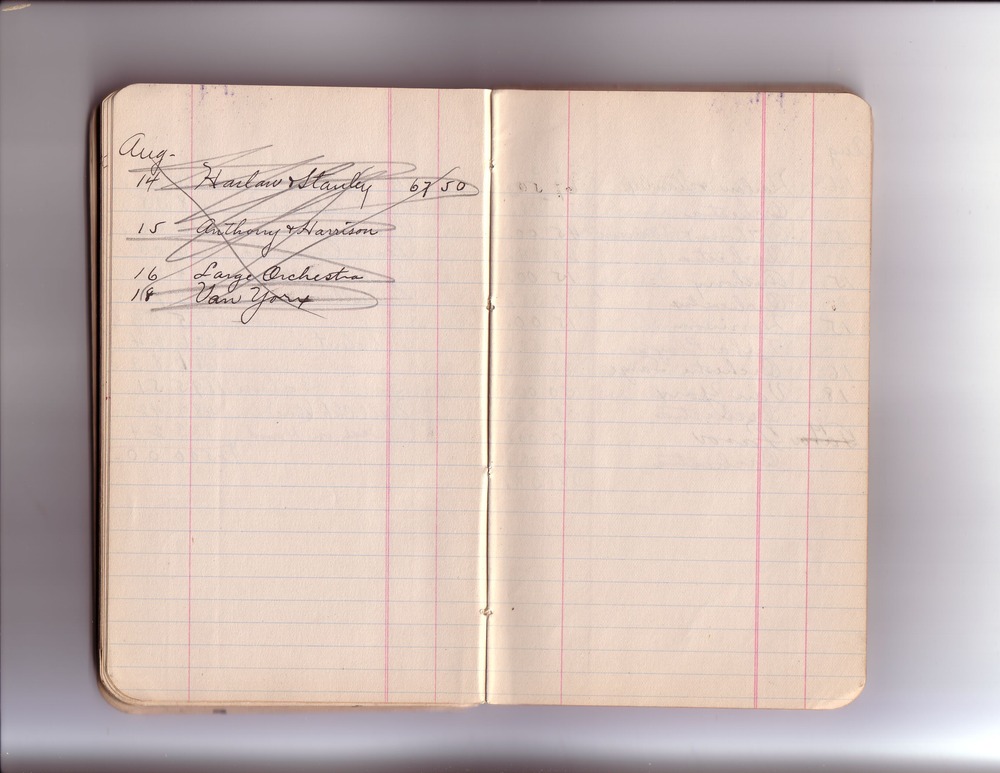 Aug-
14 Harlow & Stanley 67 50
15 Anthony & Harrison
16 Large Orchestra
18 Van York